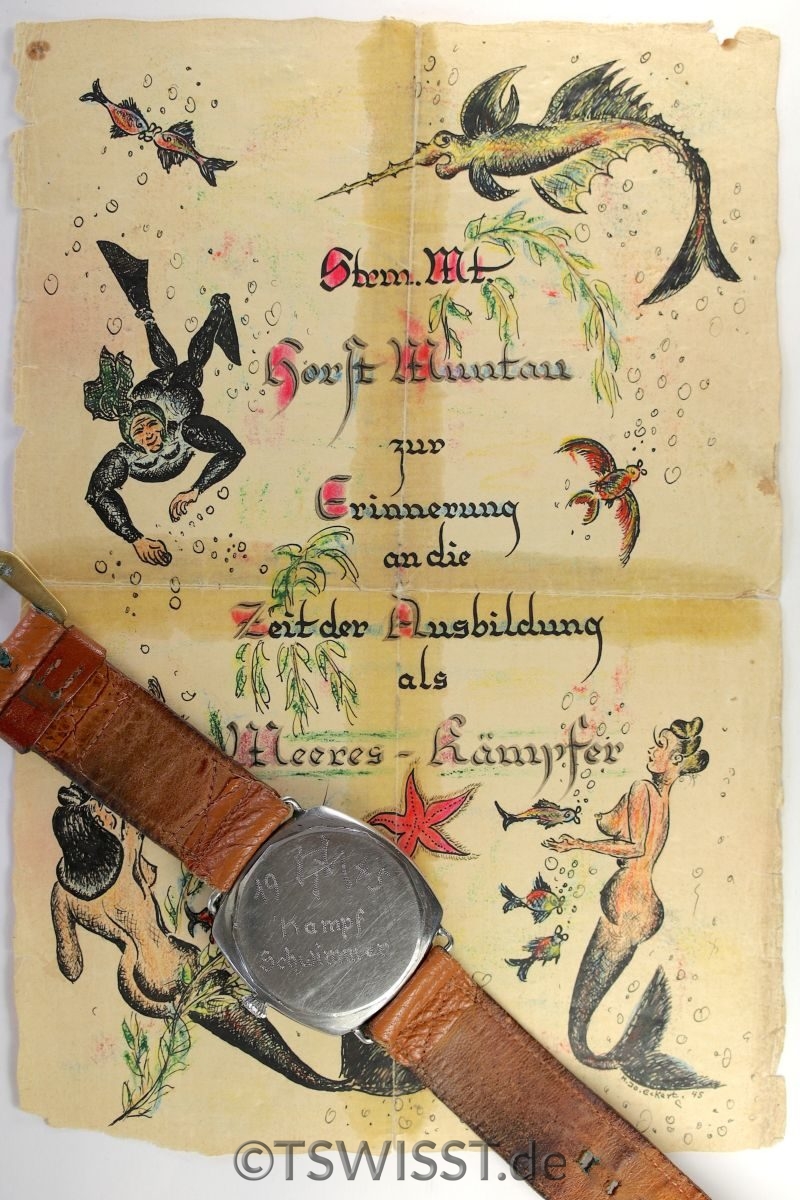 Strm. Mt.
Horst Muntau
zur
Erinnerung
an die
Zeit der Ausbildung
als
Meeres-Kämpfer
19
Kampf
Schwimmer
Eckert. 45
©TSWISST.de